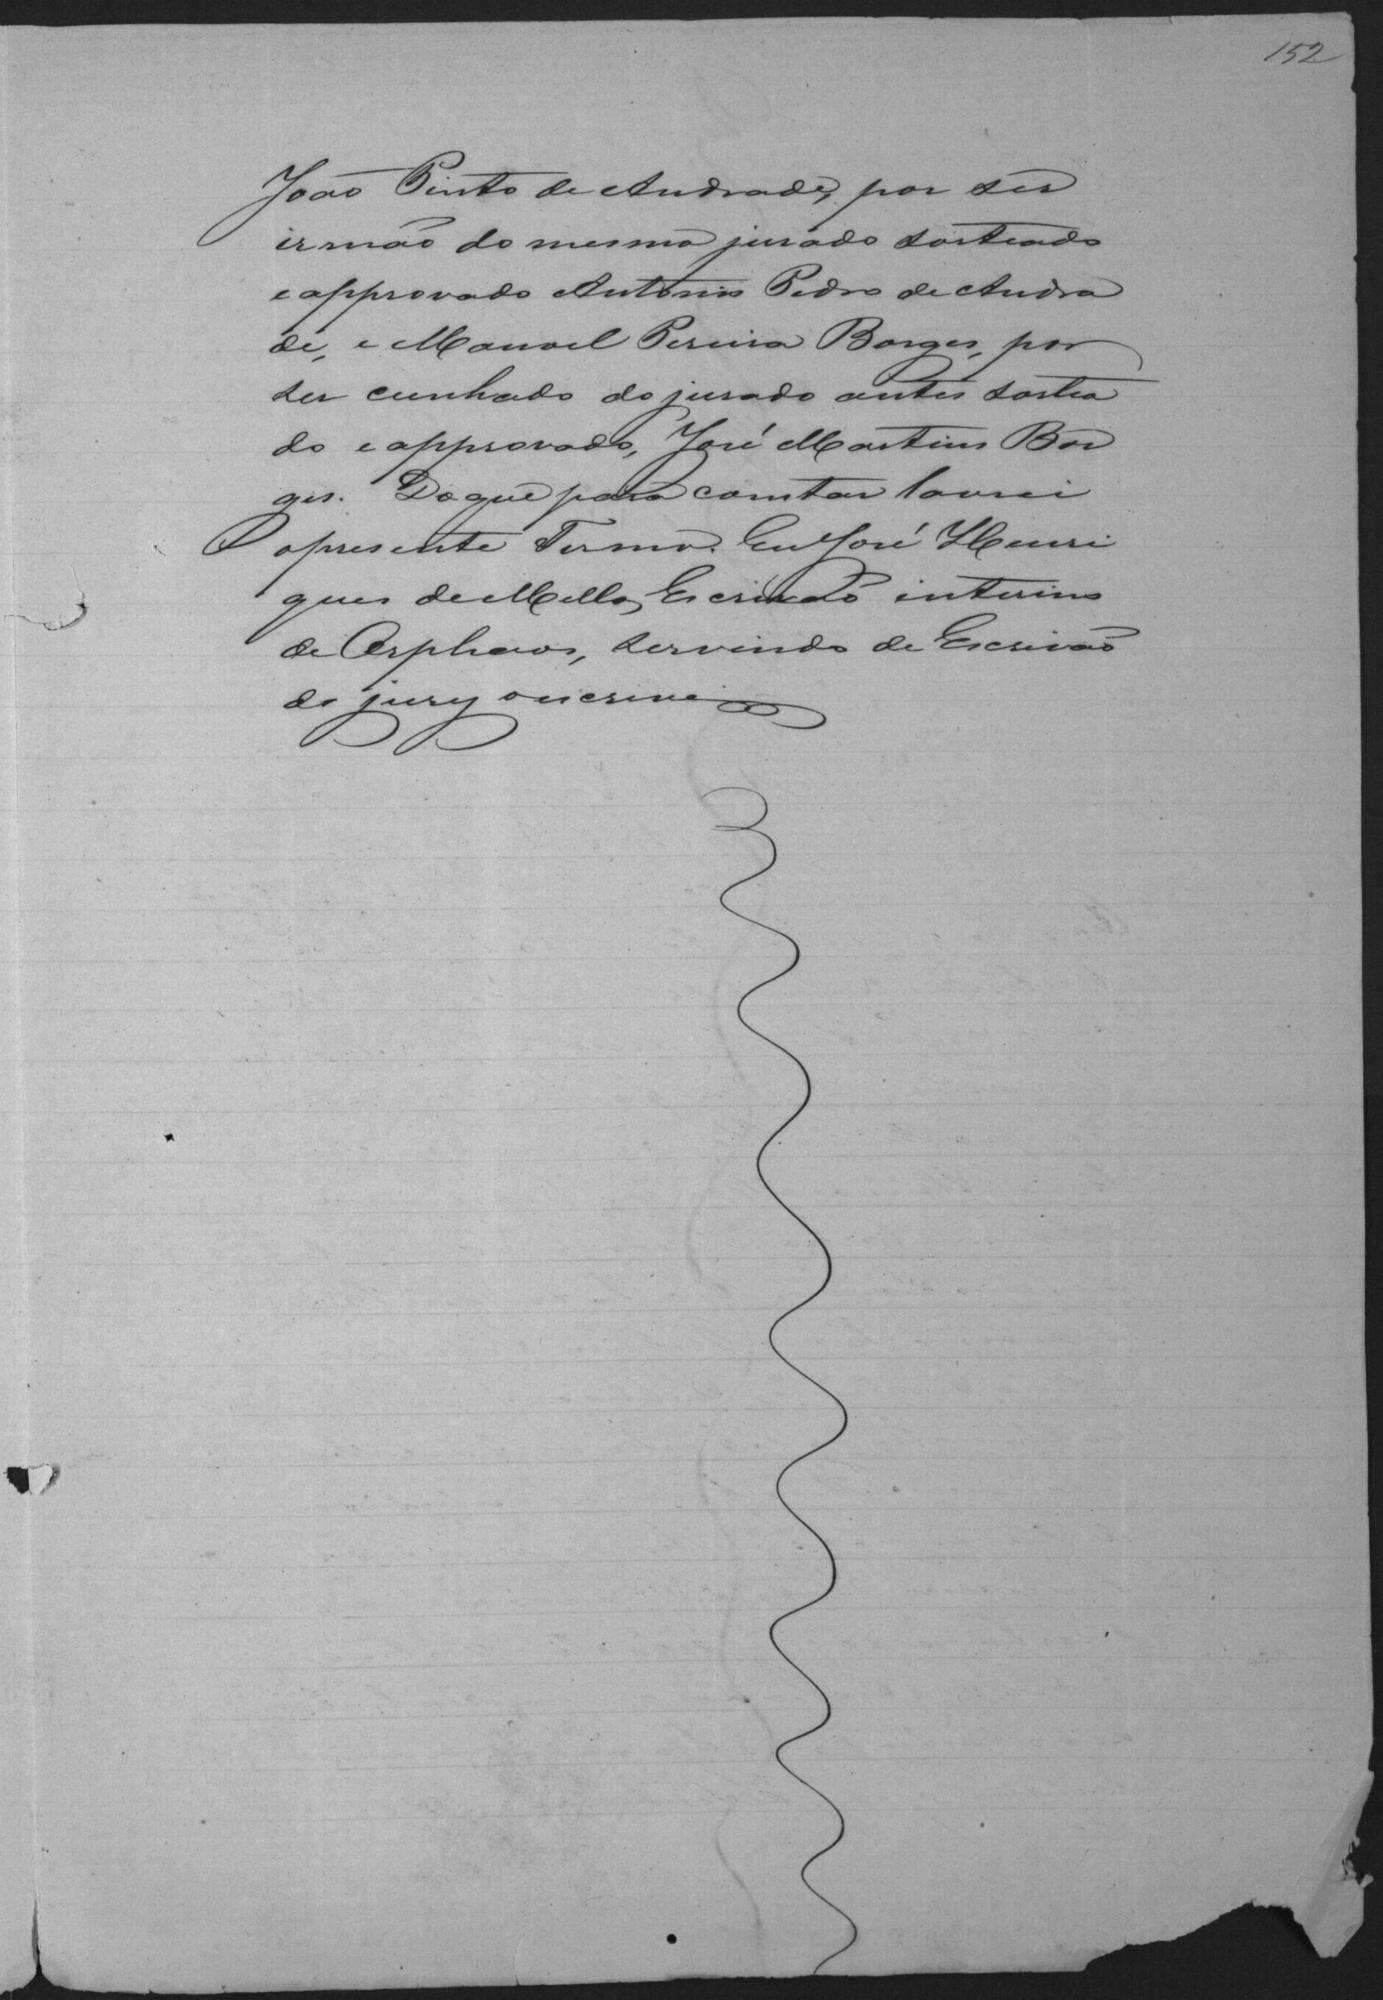 152
João Pinto de Andrade, por ser
irmão do mesmo jurado sorteado
e approvado Antonio Pedro de Andra
de, e Manoel Pereira Borges, por
ser cunhado do jurado antes sortea
do e approvado, José Martins Bor
ges. Do que para constar lavrei
o presente Termo. Eu José Henri
ques de Mello, Escrivão interino
de Orphaos, servindo de Escrivão
do jury o escrevi